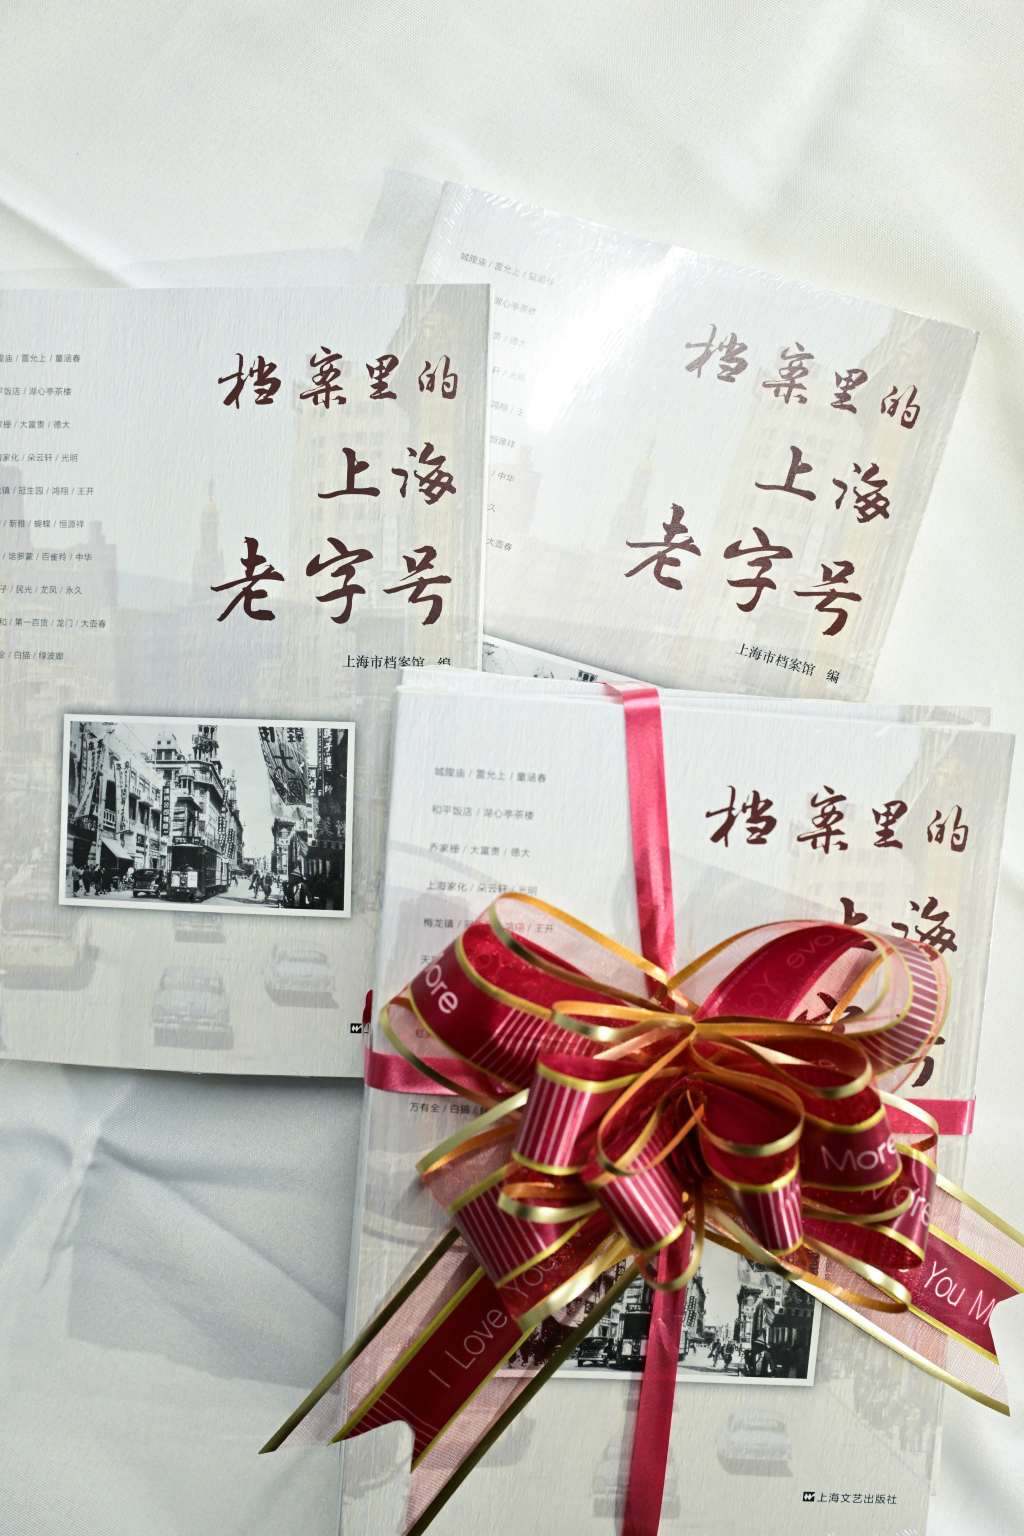 隍庙 / 雷允上 / 童涵春
平饭店 / 湖心亭茶楼
家栅 / 大富贵 / 德大
海家化 / 朵云轩 / 光明
龙镇 / 冠生园 / 鸿翔 / 王开
/ 新雅 / 蝴蝶 / 恒源祥
/ 培罗蒙 / 百雀羚 / 中华
子 / 民光 / 龙凤 / 永久
和 / 第一百货 / 龙门 / 大壶春
全 / 白猫 / 绿波廊
档案里的
上海
老字号
上海市档案馆 编
城隍庙 / 雷允上 / 童涵春
湖心亭茶楼
贵 / 德大
轩 / 光明
鸿翔 / 王
恒源祥
/ 中华
久
大壶春
档案里的
上海
老字号
上海市档案馆 编
城隍庙 / 雷允上 / 童涵春
和平饭店 / 湖心亭茶楼
乔家栅 / 大富贵 / 德大
上海家化 / 朵云轩 / 光明
梅龙镇 / 冠 鸿翔 / 王开
万有全 / 白猫 /
档案里的
上海
号
More
More
More
I Love You
You M
上海文艺出版社